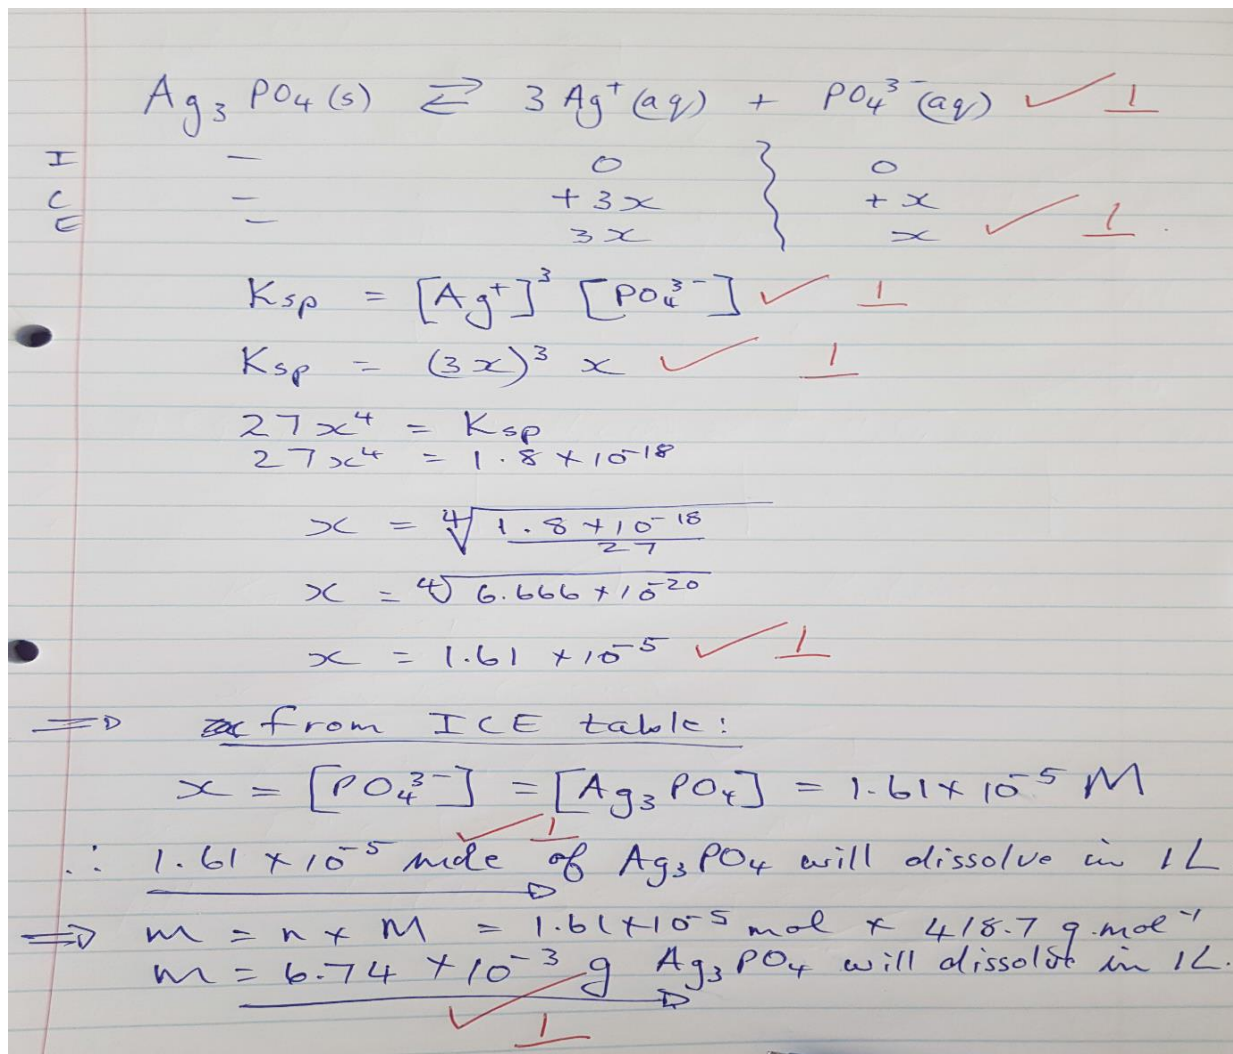 Ag₃PO₄(s) ⇄ 3Ag⁺(aq) + PO₄³⁻(aq) ✓ 1
I – 0 0
C – +3x +x
E – 3x x ✓ 1
Ksp = [Ag⁺]³ [PO₄³⁻] ✓ 1
Ksp = (3x)³ x ✓ 1
27x⁴ = Ksp
27x⁴ = 1.8 × 10⁻¹⁸
x = ⁴√(1.8 × 10⁻¹⁸ / 27)
x = ⁴√6.666 × 10⁻²⁰
x = 1.61 × 10⁻⁵ ✓ 1
⇒ from ICE table:
x = [PO₄³⁻] = [Ag₃PO₄] = 1.61 × 10⁻⁵ M
✓ 1
∴ 1.61 × 10⁻⁵ mole of Ag₃PO₄ will dissolve in 1L
⇒ m = n × M = 1.61 × 10⁻⁵ mol × 418.7 g.mol⁻¹
m = 6.74 × 10⁻³ g Ag₃PO₄ will dissolve in 1L.
✓ 1